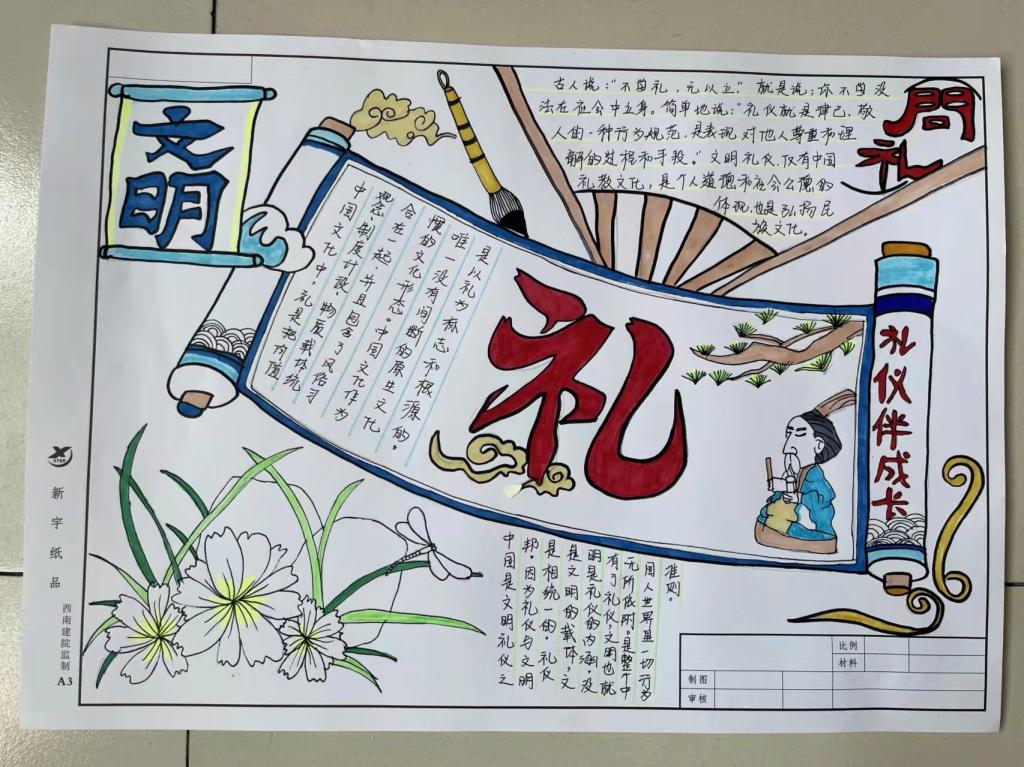 文明
問礼
古人说:"不学礼,无以立。"就是说,你不学没
法在社会中立身。简单地说:"礼仪就是律己,敬
人的一种行为规范,是表现对他人尊重和理
解的过程和手段。"文明礼仪,仅有中国
礼教文化,是个人道德和社会公德的
体现,也是弘扬民
族文化。
中国文化中,礼是把价值
观念、制度计设、物质载体统
合在一起,并且包含了风俗习
惯的文化形态。中国文化作为
唯一没有间断的原生文化
是以礼为标志和根源的。
礼
礼仪伴成长
中国是文明礼仪之
邦。因为礼仪与文明
是相统一的。礼仪
是文明的载体,文
明是礼仪的内涵。没
有了礼仪,文明也就
无所依附。是整个中
国人世界里一切行为
准则。
新宇纸品
西南建院监制
A3
比例
材料
制图
审核